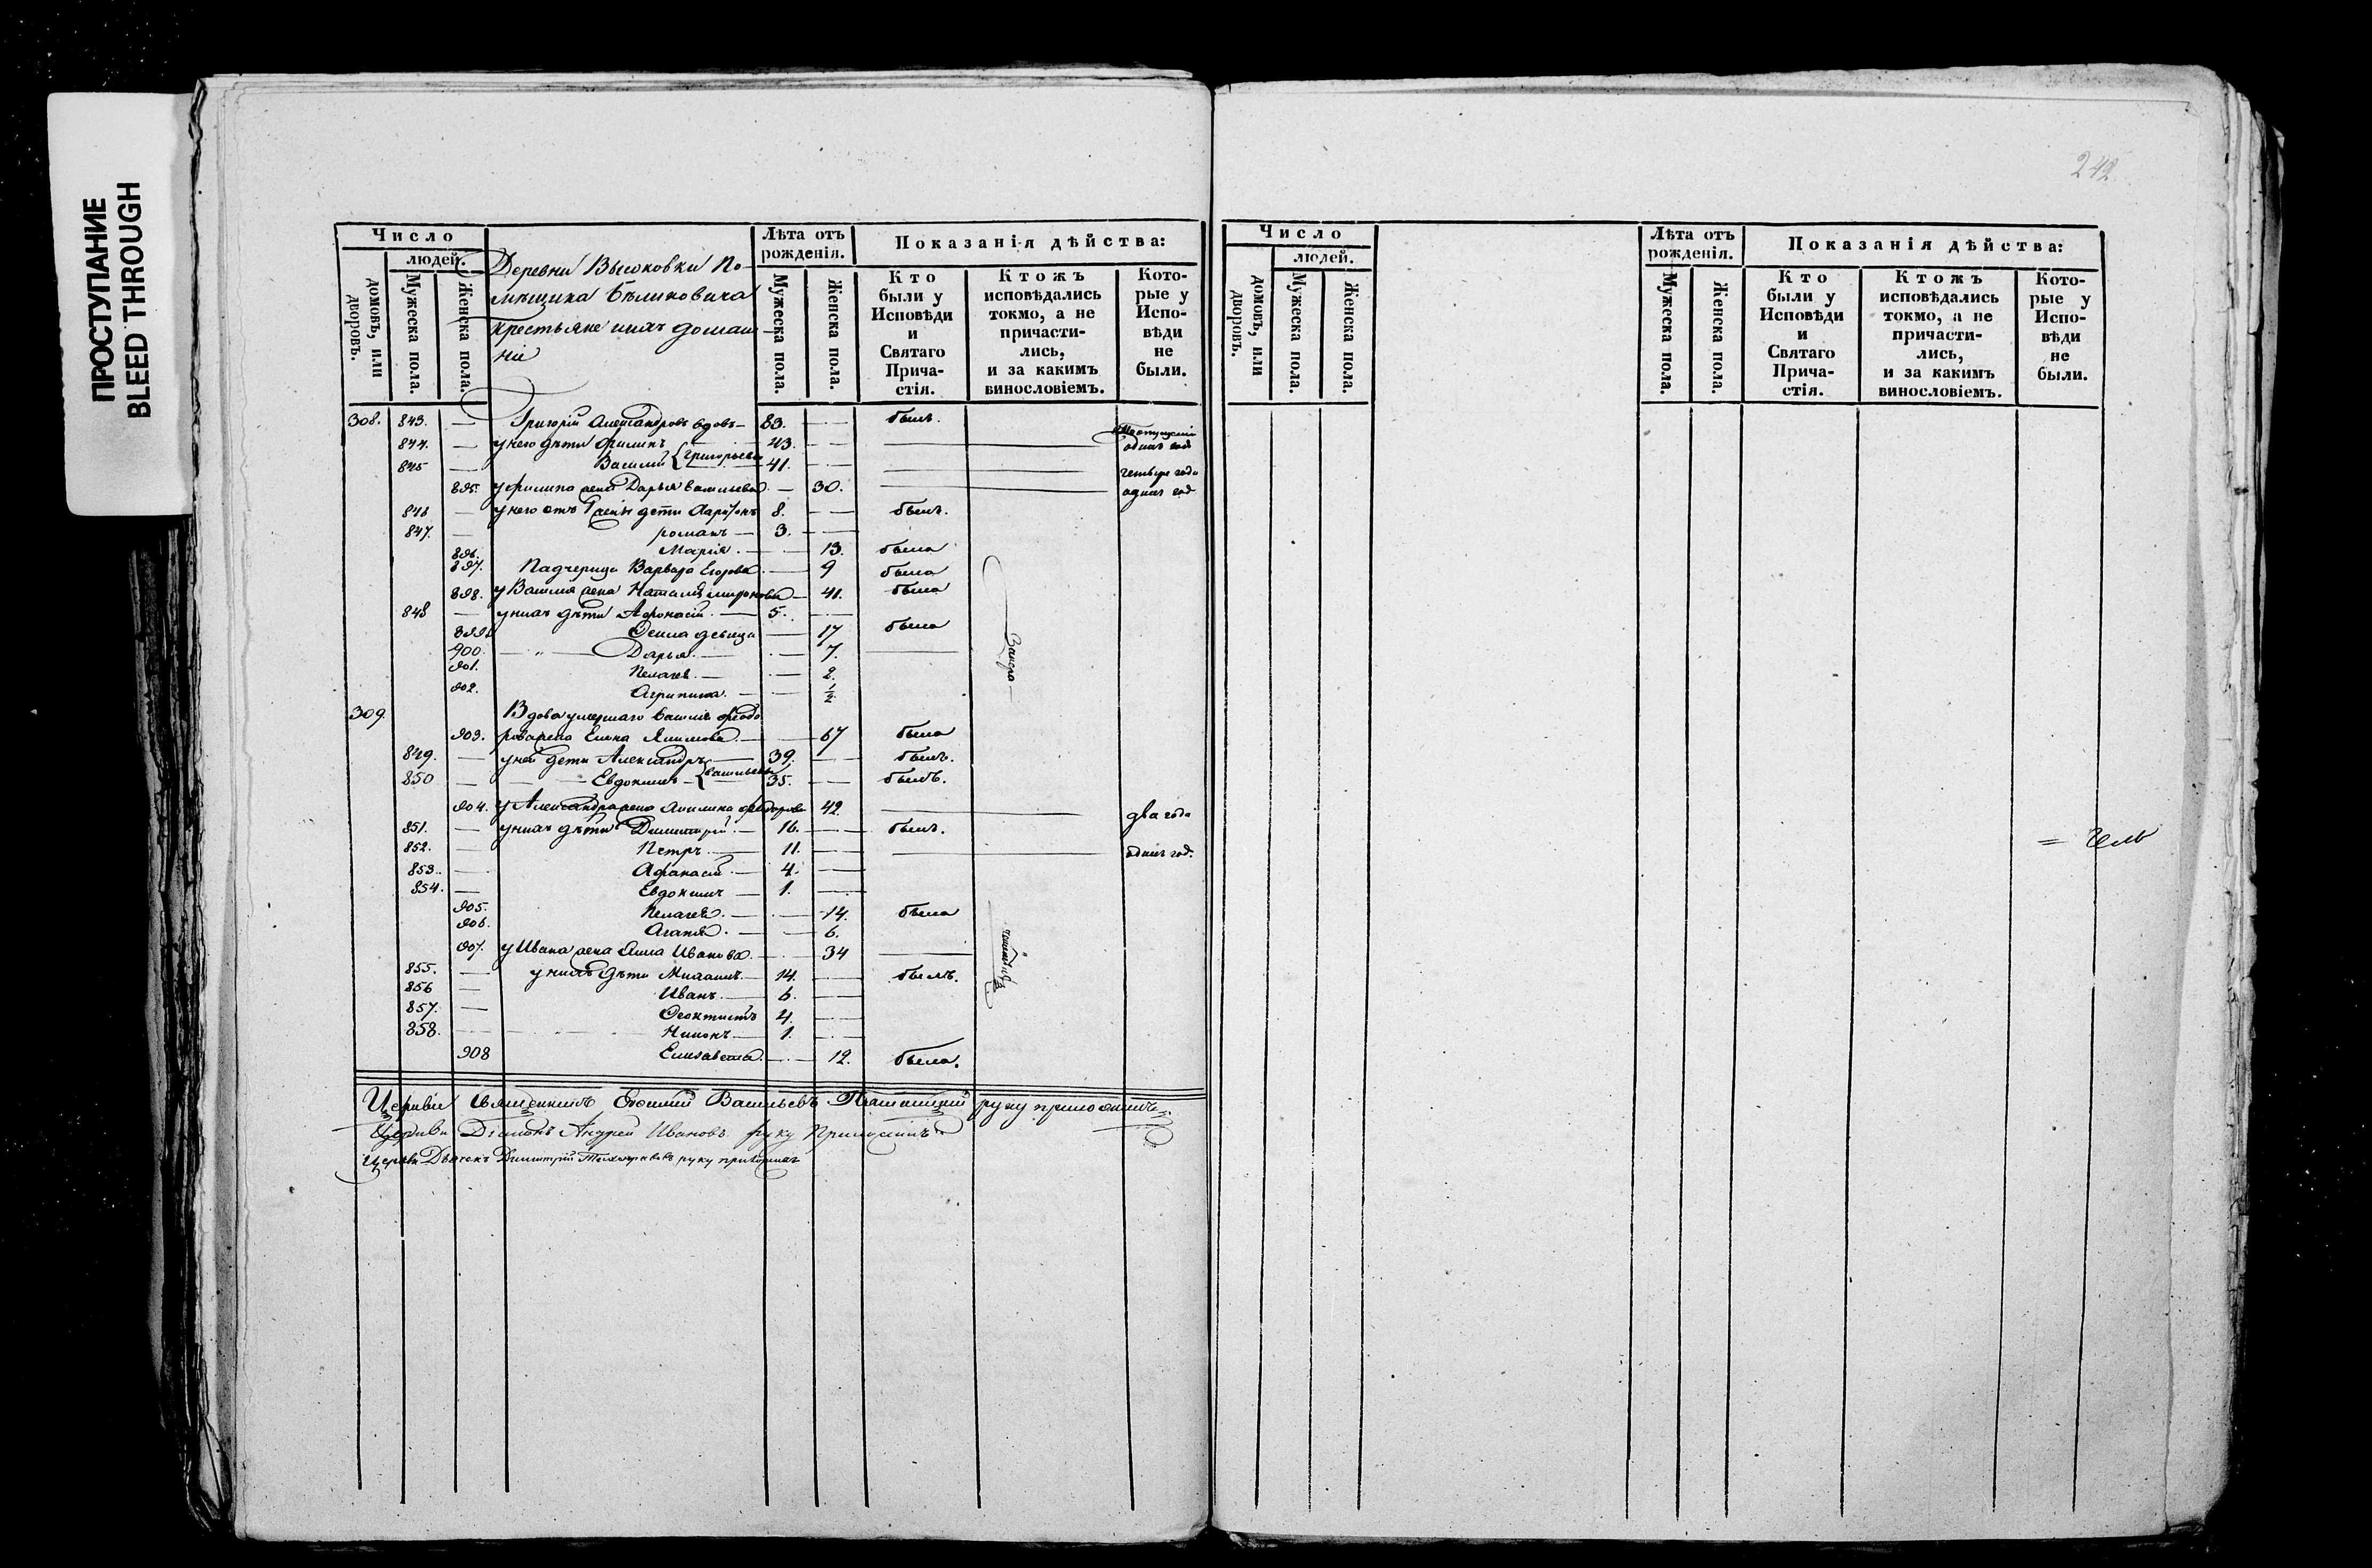 ПРОСТУПАНИЕ
BLEED THROUGH
242
Число
людей.
домовъ, или дворовъ.
Мужеска пола.
Женска пола.
Деревни Высоковки По-
мѣщика Бѣликовича
крестьяне ихъ домаш-
ніе
Лѣта отъ рожденія.
Мужеска пола.
Женска пола.
Показанія дѣйства:
Кто были у Исповѣди и Святаго Прича-стія.
Ктожъ исповѣдались токмо, а не причасти-лись, и за какимъ винословіемъ.
Кото-рые у Испо-вѣди не были.
308. 843. — Григорій Александровъ вдовъ — 83. — былъ.
844. — у него дѣти Филипъ 43. — одинъ годъ
845 — Василій { Григорьевы 41. — четыре года
895. у Филипа жена Дарья Васильева — 30. одинъ год
846 — у него отъ 1 жены дети Харитонъ 8. — былъ.
847. — романъ — 3. —
896. Марія. — 13. была
897. Падчерица Варвара Егорова — 9 была
898. у Василія жена Наталія миронова — 41. была
848 — у нихъ дѣти Афонасій. — 5. —
899. девица — 17 была
900. — „ — Дарья. — 7. —
901. Пелагея. — 2.
902. Агрипина. — ½
Взмора
309. Вдова умершаго Василія Феодо
903. рова жена Елена Якимова. — 67 была
849. — у ней дети Александръ 39. — былъ.
850 — Евдокимъ { Васильевы 35. — былъ.
904. у Александра жена Акилина Федорова 42. — два года
851. — у нихъ дѣти Димитрій. — 16. — былъ.
852. — Петръ. — 11. — одинъ год.
853. — Афанасій — 4. —
854. — Евдокимъ — 1. —
905. Пелагея. — 14. была
906. Агафія. — 6.
907. у Ивана жена Анна Иванова. — 34 —
855. — у нихъ дѣти Михаилъ. — 14. — былъ.
856 — Иванъ. — 6. —
857. — Феоктистъ 4. —
858. — Никонъ — 1. —
908 Елизавета. — 12. была.
Церкви Священникъ Васильевъ руку приложилъ
Церкви Діаконъ Андрей Ивановъ руку Приложилъ
Церкви Дьячекъ Димитрій руку приложилъ
Число
людей.
домовъ, или дворовъ.
Мужеска пола.
Женска пола.
Лѣта отъ рожденія.
Мужеска пола.
Женска пола.
Показанія дѣйства:
Кто были у Исповѣди и Святаго Прича-стія.
Ктожъ исповѣдались токмо, а не причасти-лись, и за какимъ винословіемъ.
Кото-рые у Испо-вѣди не были.